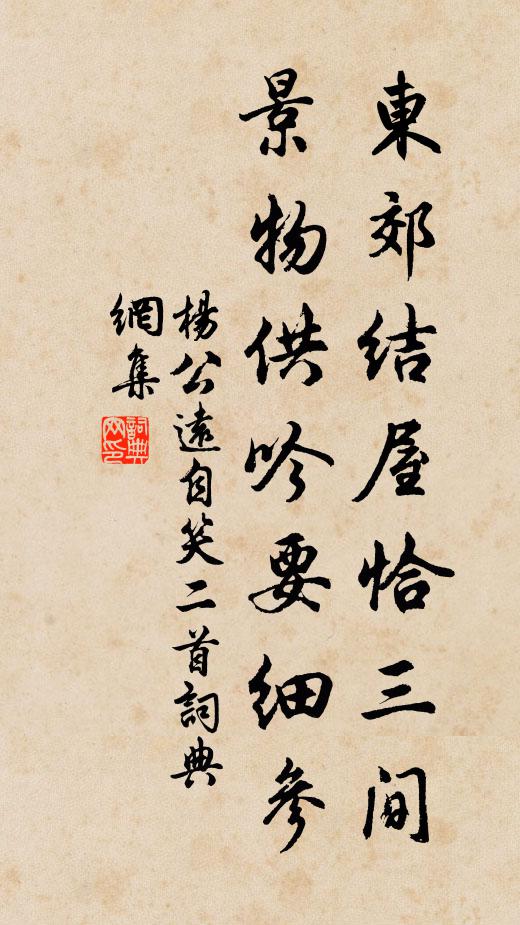 東郊結屋恰三间
景物供吟要细參
楊公遠自笑二首詞典
網集
詞典
网印